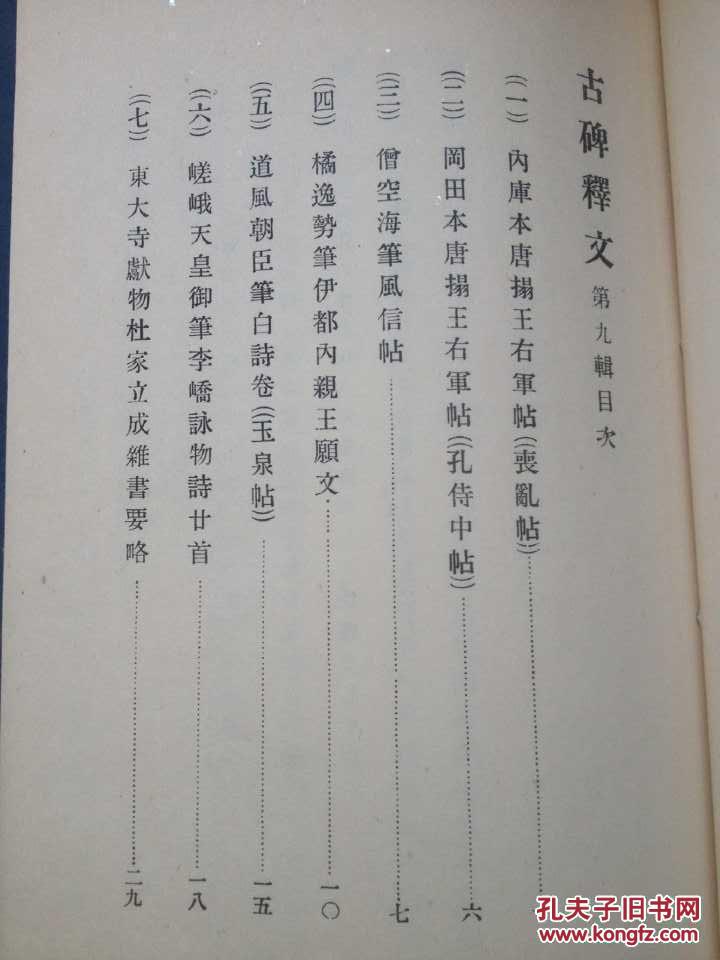 古碑釋文 第九輯目次
(一) 內庫本唐搨王右軍帖(喪亂帖)……一
(二) 岡田本唐搨王右軍帖(孔侍中帖)……六
(三) 僧空海筆風信帖……七
(四) 橘逸勢筆伊都內親王願文……一〇
(五) 道風朝臣筆白詩卷(玉泉帖)……一五
(六) 嵯峨天皇御筆李嶠詠物詩廿首……一八
(七) 東大寺獻物杜家立成雜書要略……二九
孔夫子旧书网
www.kongfz.com